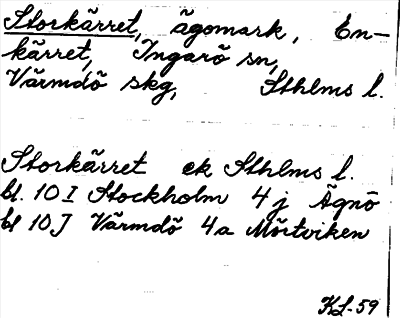 Storkärret, ägomark, En-
kärret, Ingarö sn,
Värmdö skg, Sthlms l.
Storkärret ek Sthlms l.
bl. 10 I Stockholm 4 j Ägnö
bl 10 J Värmdö 4a Mörtviken
KL-59